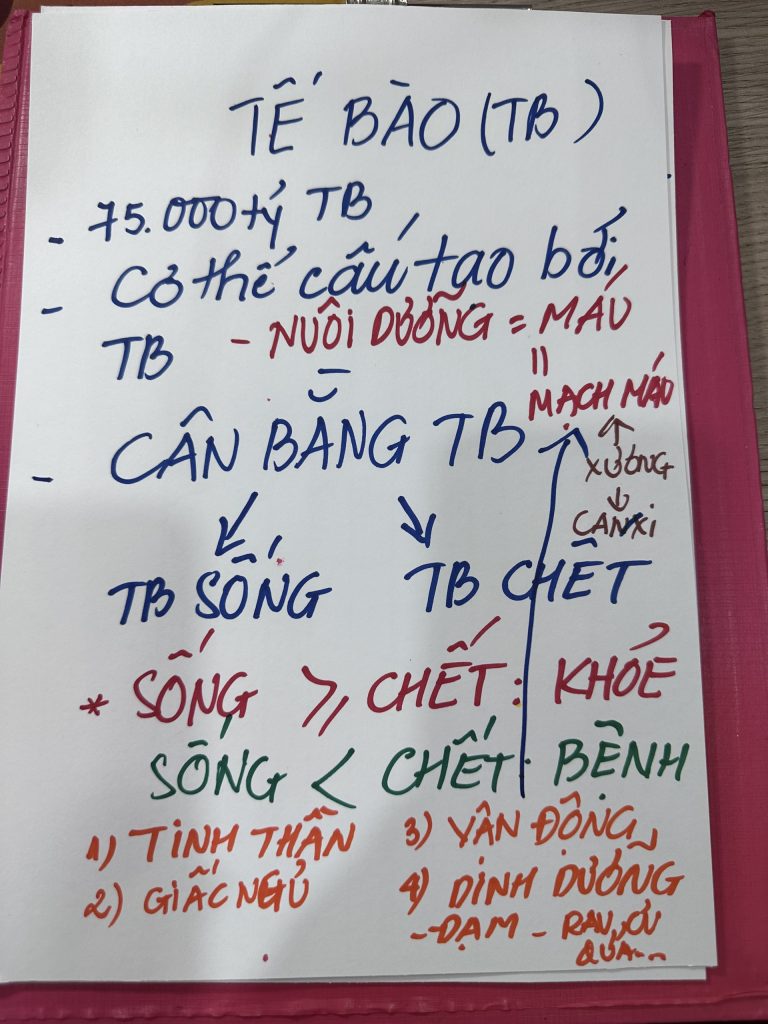 TẾ BÀO (TB)
- 75.000 tỷ TB
- Cơ thể cấu tạo bởi
TB - NUÔI DƯỠNG = MÁU
=
MẠCH MÁU
- CÂN BẰNG TB
XƯƠNG
CANXI
TB SỐNG TB CHẾT
* SỐNG ≥ CHẾT: KHỎE
SỐNG < CHẾT: BỆNH
1) TINH THẦN
2) GIẤC NGỦ
3) VẬN ĐỘNG
4) DINH DƯỠNG
- ĐẠM - RAU, CỦ
QUẢ...